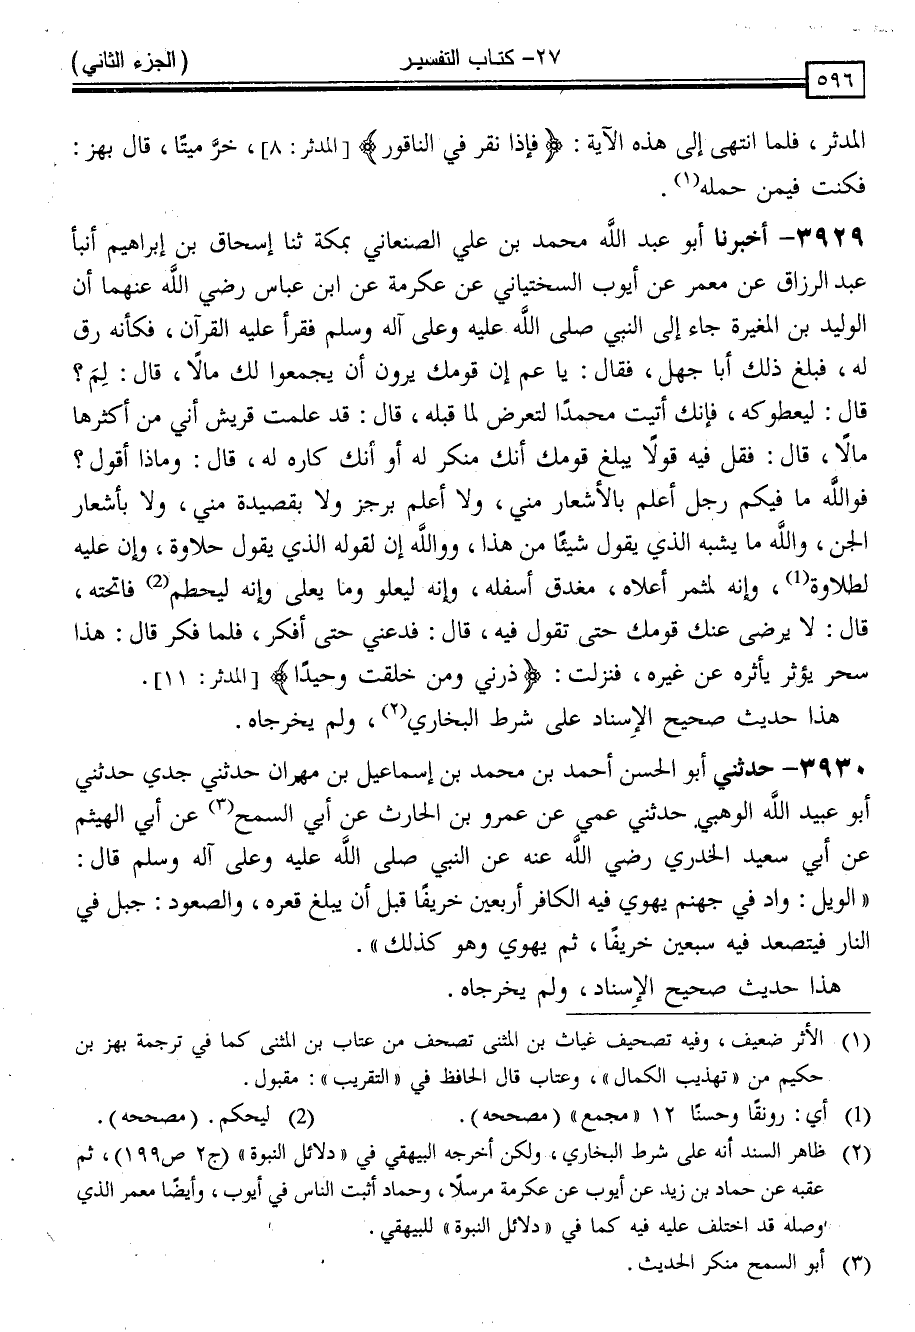 ٥٩٦ ٢٧- كتاب التفسير (الجزء الثاني)
المدثر ، فلما انتهى إلى هذه الآية : ﴿ فإذا نقر في الناقور ﴾ [المدثر : ٨] ، خرَّ ميتًا ، قال بهز :
فكنت فيمن حمله(١) .
٣٩٢٩- أخبرنا أبو عبد اللَّه محمد بن علي الصنعاني بمكة ثنا إسحاق بن إبراهيم أنبأ
عبد الرزاق عن معمر عن أيوب السختياني عن عكرمة عن ابن عباس رضي اللَّه عنهما أن
الوليد بن المغيرة جاء إلى النبي صلى اللَّه عليه وعلى آله وسلم فقرأ عليه القرآن ، فكأنه رق
له ، فبلغ ذلك أبا جهل ، فقال : يا عم إن قومك يرون أن يجمعوا لك مالًا ، قال : لِمَ ؟
قال : ليعطوكه ، فإنك أتيت محمدًا لتعرض لما قبله ، قال : قد علمت قريش أني من أكثرها
مالًا ، قال : فقل فيه قولًا يبلغ قومك أنك منكر له أو أنك كاره له ، قال : وماذا أقول ؟
فواللَّه ما فيكم رجل أعلم بالأشعار مني ، ولا أعلم برجز ولا بقصيدة مني ، ولا بأشعار
الجن ، واللَّه ما يشبه الذي يقول شيئًا من هذا ، وواللَّه إن لقوله الذي يقول حلاوة ، وإن عليه
لطلاوة(1) ، وإنه لمثمر أعلاه ، مغدق أسفله ، وإنه ليعلو وما يعلى وإنه ليحطم(2) فاتحته ،
قال : لا يرضى عنك قومك حتى تقول فيه ، قال : فدعني حتى أفكر ، فلما فكر قال : هذا
سحر يؤثر يأثره عن غيره ، فنزلت : ﴿ ذرني ومن خلقت وحيدًا ﴾ [المدثر : ١١] .
هذا حديث صحيح الإسناد على شرط البخاري(٢) ، ولم يخرجاه .
٣٩٣٠- حدثني أبو الحسن أحمد بن محمد بن إسماعيل بن مهران حدثني جدي حدثني
أبو عبيد اللَّه الوهبي حدثني عمي عن عمرو بن الحارث عن أبي السمح(٣) عن أبي الهيثم
عن أبي سعيد الخدري رضي اللَّه عنه عن النبي صلى اللَّه عليه وعلى آله وسلم قال :
« الويل : واد في جهنم يهوي فيه الكافر أربعين خريفًا قبل أن يبلغ قعره ، والصعود : جبل في
النار فيتصعد فيه سبعين خريفًا ، ثم يهوي وهو كذلك » .
هذا حديث صحيح الإسناد ، ولم يخرجاه .
(١) الأثر ضعيف ، وفيه تصحيف غياث بن المثنى تصحف من عتاب بن المثنى كما في ترجمة بهز بن
حكيم من « تهذيب الكمال » ، وعتاب قال الحافظ في « التقريب » : مقبول .
(1) أي : رونقًا وحسنًا ١٢ « مجمع » (مصححه) . (2) ليحكم . (مصححه) .
(٢) ظاهر السند أنه على شرط البخاري ، ولكن أخرجه البيهقي في « دلائل النبوة » (ج٢ ص١٩٩) ، ثم
عقبه عن حماد بن زيد عن أيوب عن عكرمة مرسلًا ، وحماد أثبت الناس في أيوب ، وأيضًا معمر الذي
وصله قد اختلف عليه فيه كما في « دلائل النبوة » للبيهقي .
(٣) أبو السمح منكر الحديث .